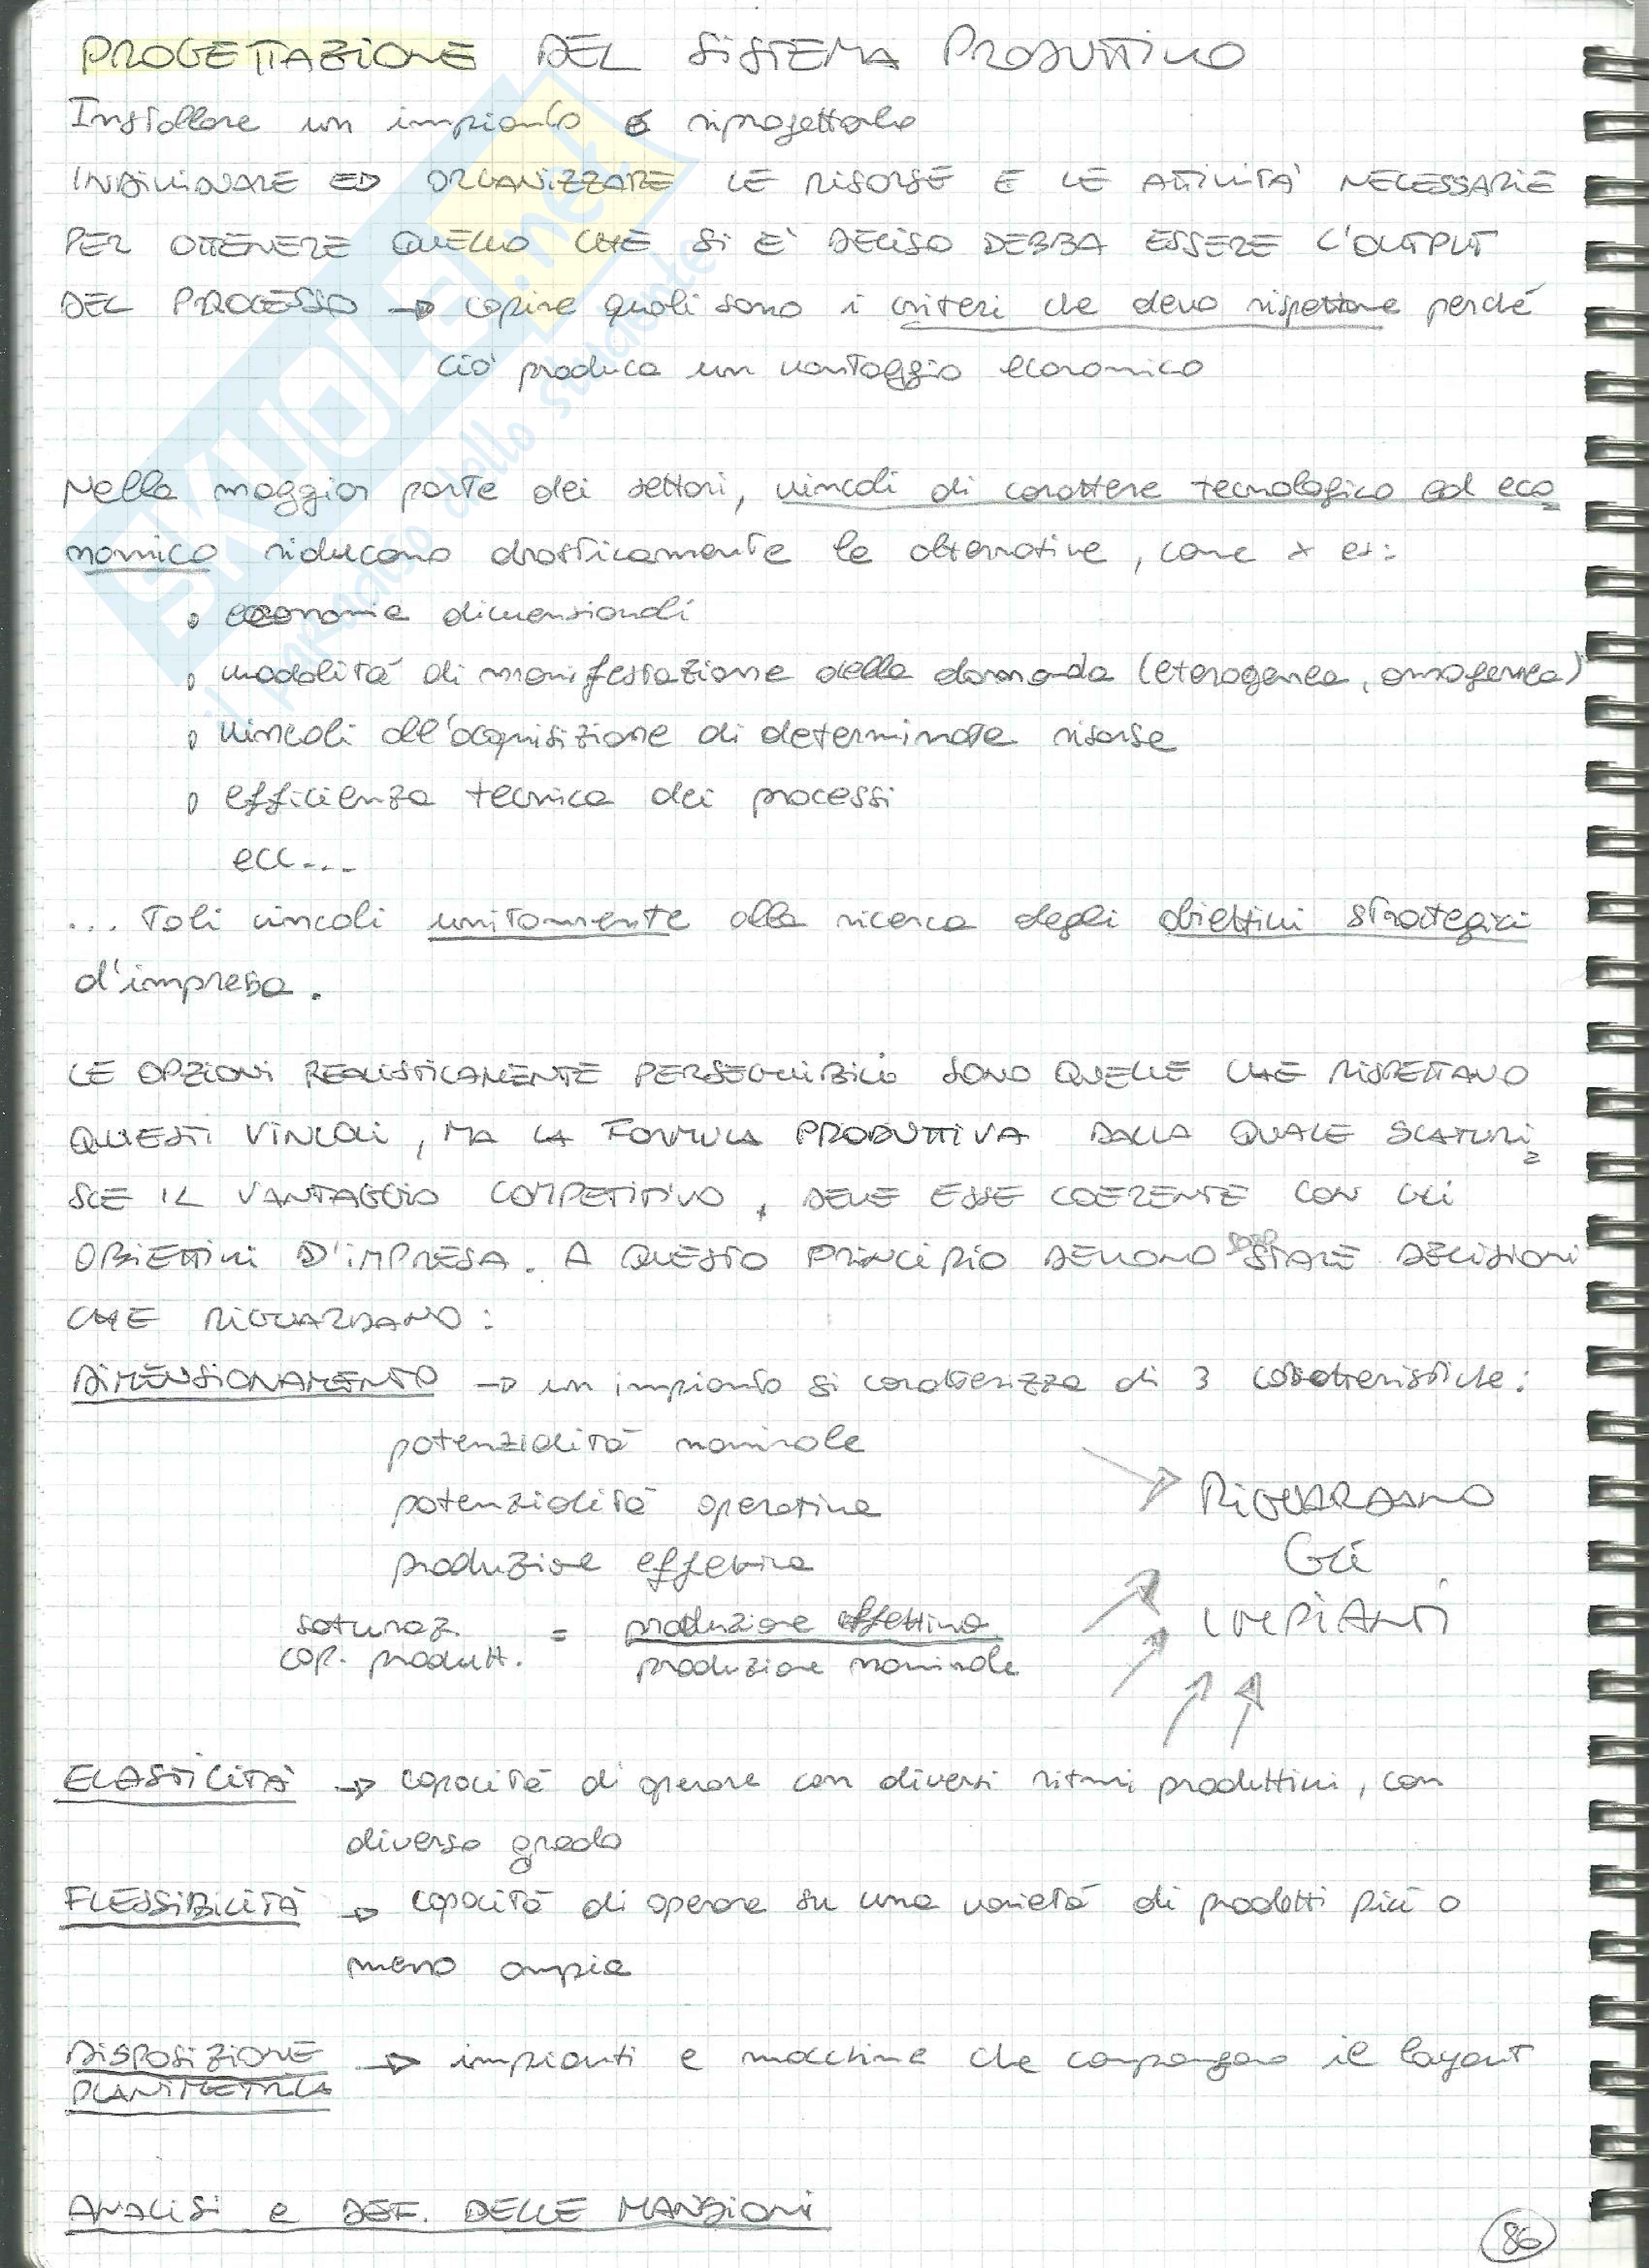 PROGETTAZIONE DEL SISTEMA PRODUTTIVO
Installare un impianto e riprogettarlo
INDIVIDUARE ED ORGANIZZARE LE RISORSE E LE ATTIVITA' NECESSARIE
PER OTTENERE QUELLO CHE SI E' DECISO DEBBA ESSERE L'OUTPUT
DEL PROCESSO → capire quali sono i criteri che devo rispettare perché
ciò produca un vantaggio economico
Nella maggior parte dei settori, vincoli di carattere tecnologico ed eco
nomico riducono drasticamente le alternative, come x es:
• economie dimensionali
• modalità di manifestazione della domanda (eterogenea, omogenea)
• vincoli all'acquisizione di determinate risorse
• efficienza tecnica dei processi
ecc...
... Tali vincoli unitamente alla ricerca degli obiettivi strategici
d'impresa.
LE OPZIONI REALISTICAMENTE PERSEGUIBILI SONO QUELLE CHE RISPETTANO
QUESTI VINCOLI, MA LA FORMULA PRODUTTIVA DALLA QUALE SCATURI
SCE IL VANTAGGIO COMPETITIVO, DEVE ESSE COERENTE CON GLI
OBIETTIVI D'IMPRESA. A QUESTO PRINCIPIO DEVONO SOTTOSTARE DECISIONI
CHE RIGUARDANO:
DIMENSIONAMENTO → un impianto si caratterizza di 3 caratteristiche:
potenzialità nominale
potenzialità operativa
produzione effettiva
saturaz. cap. produtt. = produzione effettiva
produzione nominale
RIGUARDANO
GLI
IMPIANTI
ELASTICITÀ → capacità di operare con diversi ritmi produttivi, con
diverso grado
FLESSIBILITÀ → capacità di operare su una varietà di prodotti più o
meno ampia
DISPOSIZIONE PLANIMETRICA → impianti e macchine che compongono il layout
ANALISI e DEF. DELLE MANSIONI
86
SKUOLA.net
il paradiso dello studente